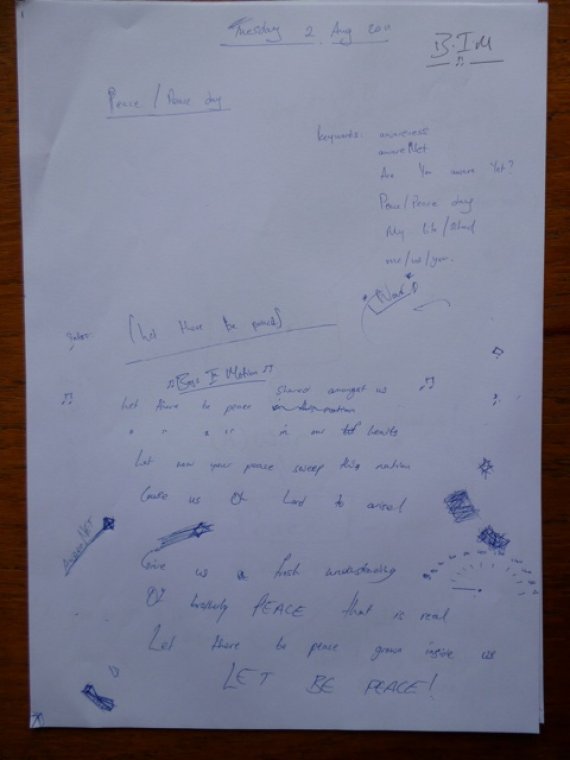 Tuesday 2 Aug 2011
B.I.M
Peace / Peace day
Keywords: awareness
awareNet
Are You aware Yet?
Peace/Peace day
My life/
me/us/you.
(Let there be peace)
Boys In Motion
Let there be peace shared amongst us
" " " " in our hearts
Let now your peace sweep this nation
Cause us Oh Lord to arise!
AwareNET
Give us a fresh understanding
Of brotherly PEACE that is real
Let there be peace grown inside us
LET BE PEACE!